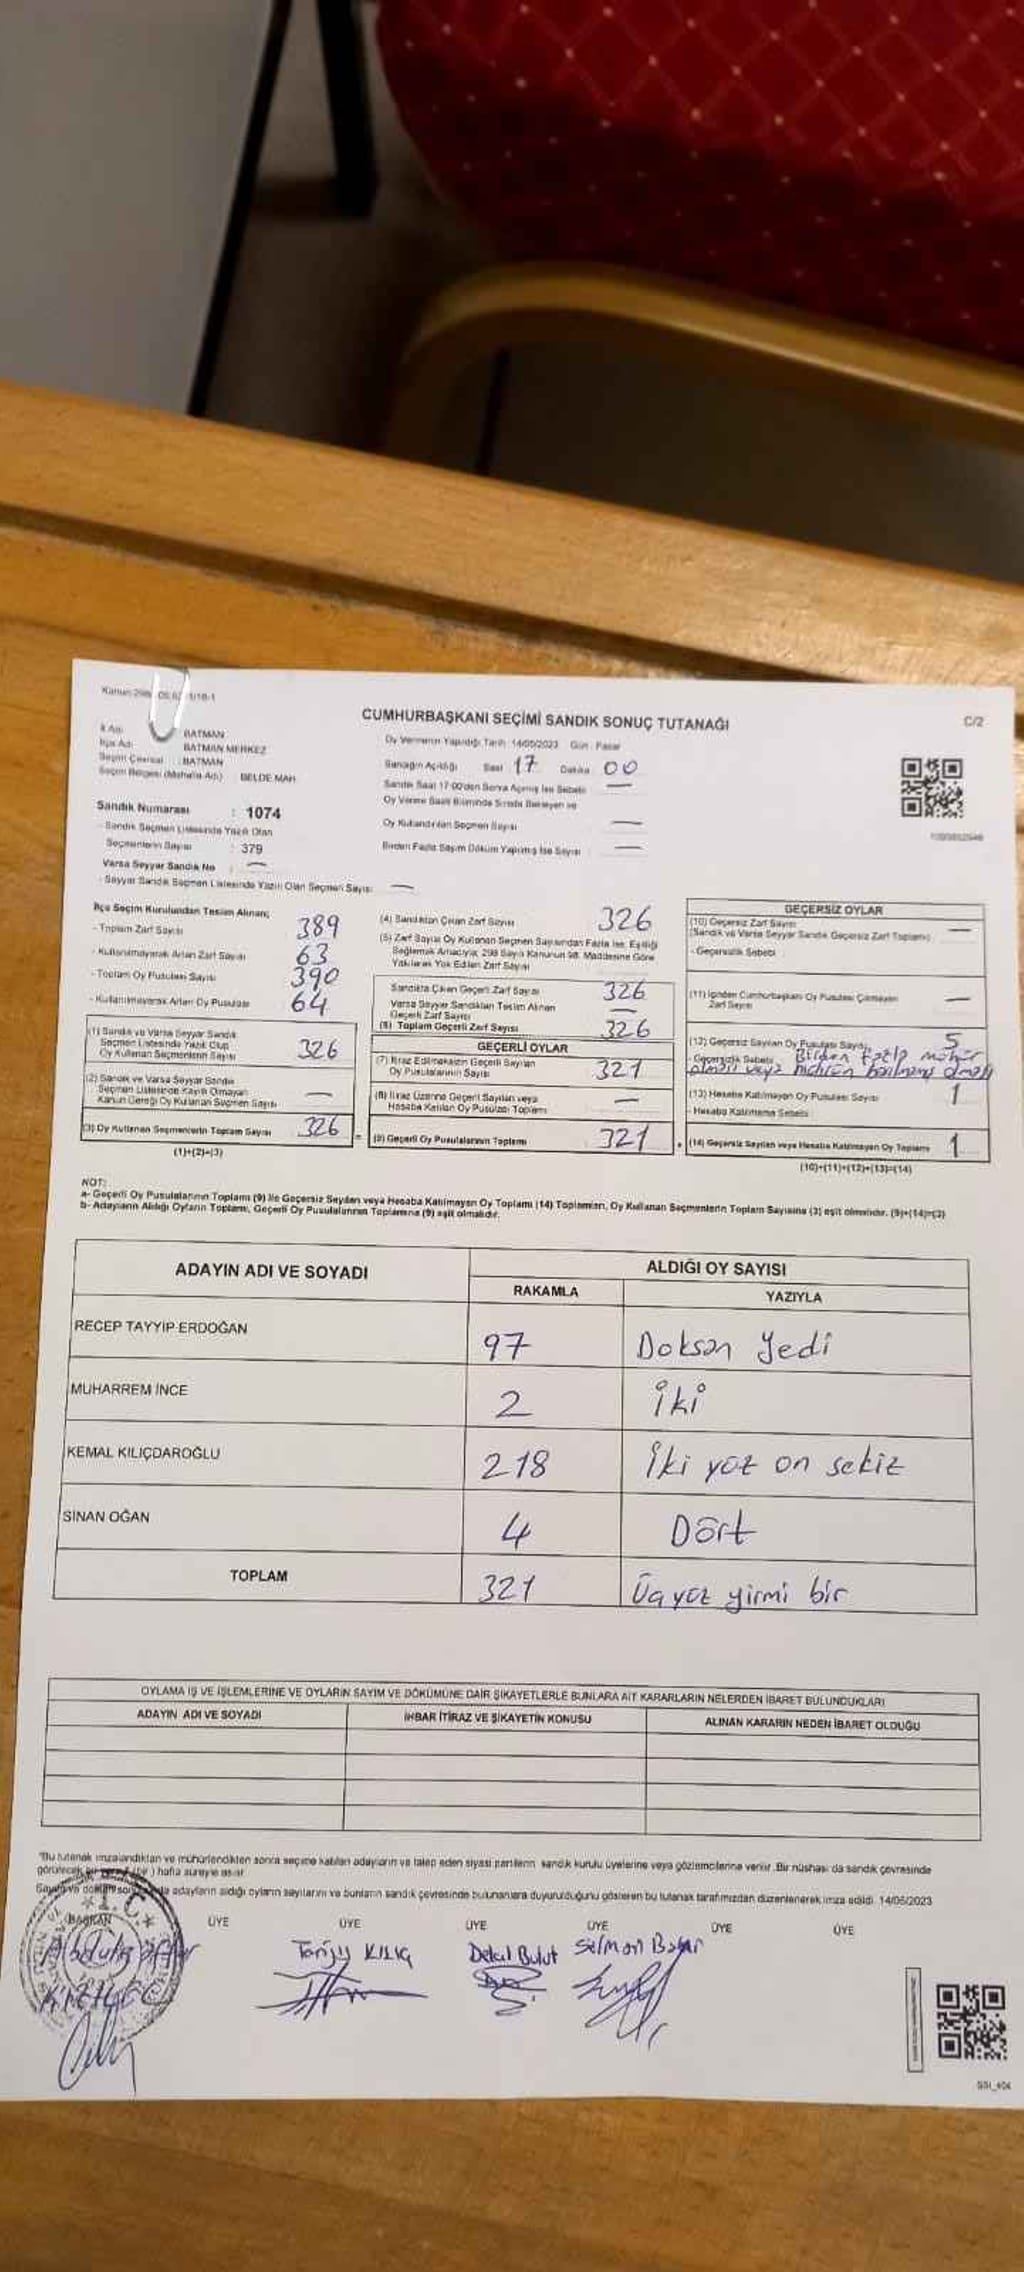 CUMHURBAŞKANI SEÇİMİ SANDIK SONUÇ TUTANAĞI
C/2
İl Adı : BATMAN
İlçe Adı : BATMAN MERKEZ
Seçim Çevresi : BATMAN
Seçim Bölgesi (Mahalle Adı) : BELDE MAH.
Oy Vermenin Yapıldığı Tarih : 14/05/2023 Gün : Pazar
Sandığın Açıldığı Saat 17 Dakika 00
Sandık Saat 17:00'den Sonra Açılmış İse Sebebi —
Oy Verme Saati Bitiminde Sırada Bekleyen ve
Oy Kullandırılan Seçmen Sayısı —
Birden Fazla Sayım Döküm Yapılmış İse Sayısı —
Sandık Numarası : 1074
- Sandık Seçmen Listesinde Yazılı Olan
Seçmenlerin Sayısı : 379
Varsa Seyyar Sandık No : —
- Seyyar Sandık Seçmen Listesinde Yazılı Olan Seçmen Sayısı: —
İlçe Seçim Kurulundan Teslim Alınan;
- Toplam Zarf Sayısı 389
- Kullanılmayarak Artan Zarf Sayısı 63
- Toplam Oy Pusulası Sayısı 390
- Kullanılmayarak Artan Oy Pusulası 64
(1) Sandık ve Varsa Seyyar Sandık
Seçmen Listesinde Yazılı Olup
Oy Kullanan Seçmenlerin Sayısı 326
(2) Sandık ve Varsa Seyyar Sandık
Seçmen Listesinde Kayıtlı Olmayan
Kanun Gereği Oy Kullanan Seçmen Sayısı —
(3) Oy Kullanan Seçmenlerin Toplam Sayısı 326
(1)+(2)=(3)
(4) Sandıktan Çıkan Zarf Sayısı 326
(5) Zarf Sayısı Oy Kullanan Seçmen Sayısından Fazla İse, Eşitliği
Sağlamak Amacıyla; 298 Sayılı Kanunun 98. Maddesine Göre
Yakılarak Yok Edilen Zarf Sayısı
Sandıkta Çıkan Geçerli Zarf Sayısı 326
Varsa Seyyar Sandıktan Teslim Alınan
Geçerli Zarf Sayısı —
(6) Toplam Geçerli Zarf Sayısı 326
GEÇERLİ OYLAR
(7) İtiraz Edilmeksizin Geçerli Sayılan
Oy Pusulalarının Sayısı 321
(8) İtiraz Üzerine Geçerli Sayılan veya
Hesaba Katılan Oy Pusulası Toplamı —
(9) Geçerli Oy Pusulalarının Toplamı 321
GEÇERSİZ OYLAR
(10) Geçersiz Zarf Sayısı —
(Sandık ve Varsa Seyyar Sandık Geçersiz Zarf Toplamı)
- Geçersizlik Sebebi :
(11) İçinden Cumhurbaşkanı Oy Pusulası Çıkmayan
Zarf Sayısı —
(12) Geçersiz Sayılan Oy Pusulası Sayısı 5
- Geçersizlik Sebebi : Birden fazla mühür
olması veya
(13) Hesaba Katılmayan Oy Pusulası Sayısı 1
- Hesaba Katılmama Sebebi :
(14) Geçersiz Sayılan veya Hesaba Katılmayan Oy Toplamı 1
(10)+(11)+(12)+(13)=(14)
NOT:
a- Geçerli Oy Pusulalarının Toplamı (9) ile Geçersiz Sayılan veya Hesaba Katılmayan Oy Toplamı (14) Toplamları, Oy Kullanan Seçmenlerin Toplam Sayısına (3) eşit olmalıdır. (9)+(14)=(3)
b- Adayların Aldığı Oyların Toplamı, Geçerli Oy Pusulalarının Toplamına (9) eşit olmalıdır.
ADAYIN ADI VE SOYADI
ALDIĞI OY SAYISI
RAKAMLA YAZIYLA
RECEP TAYYİP ERDOĞAN 97 Doksan Yedi
MUHARREM İNCE 2 İki
KEMAL KILIÇDAROĞLU 218 İki yüz on sekiz
SİNAN OĞAN 4 Dört
TOPLAM 321 Üç yüz yirmi bir
OYLAMA İŞ VE İŞLEMLERİNE VE OYLARIN SAYIM VE DÖKÜMÜNE DAİR ŞİKAYETLERLE BUNLARA AİT KARARLARIN NELERDEN İBARET BULUNDUKLARI
ADAYIN ADI VE SOYADI İHBAR İTİRAZ VE ŞİKAYETİN KONUSU ALINAN KARARIN NEDEN İBARET OLDUĞU
"Bu tutanak imzalandıktan ve mühürlendikten sonra seçime katılan adayların ve talep eden siyasi partilerin sandık kurulu üyelerine veya gözlemcilerine verilir. Bir nüshası da sandık çevresinde
görülecek bir hafta süreyle asılır.
Sayım ve döküm adayların aldığı oyların sayılarını ve bunların sandık çevresinde bulunanlara duyurulduğunu gösteren bu tutanak tarafımızdan düzenlenerek imza edildi. 14/05/2023
BAŞKAN ÜYE ÜYE ÜYE ÜYE ÜYE ÜYE
T.C.
KILIÇ Delal Bulut Selman